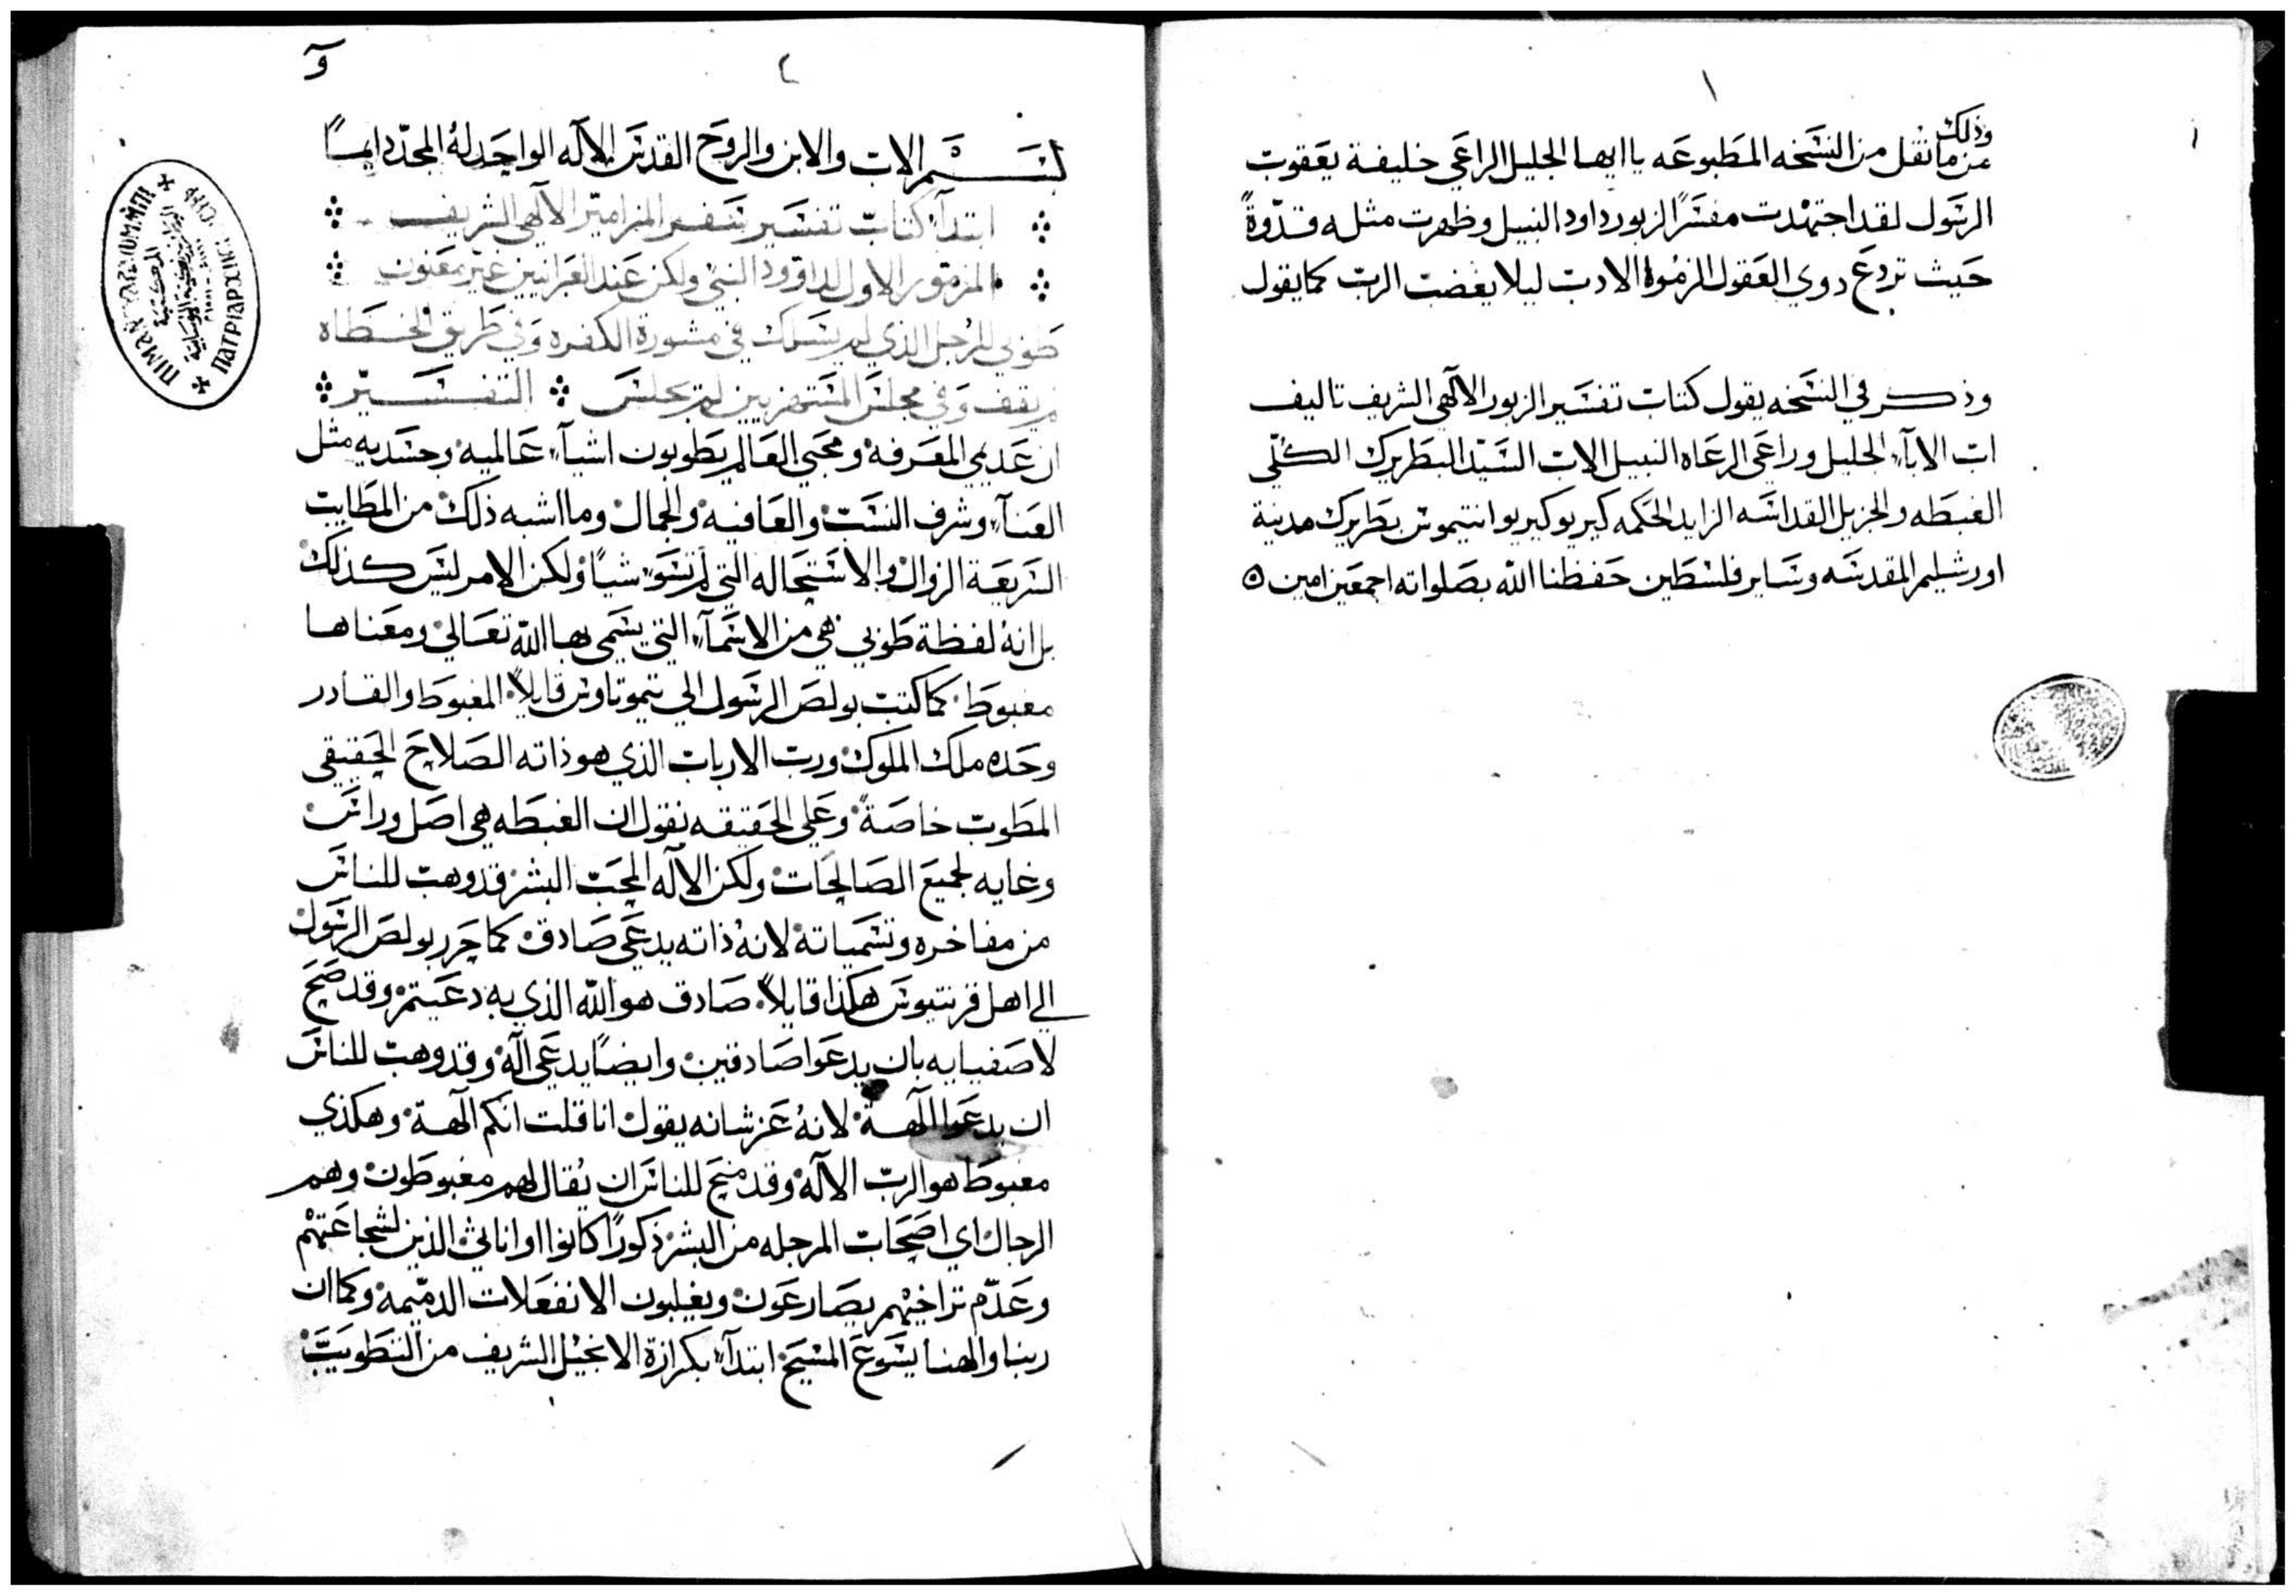 ١
وذلك
من ما نقل من النسخه المطبوعه يا ايها الجليل الراعي خليفة يعقوب
الرسول لقد اجتهدت مفسرًا لزبور داود النبيل وظهرت مثله قدّوةً
حيث تردع دوي العقول الزموا الادب ليلا يغضب الرب كما يقول
وذكر في النسخه يقول كتاب تفسير الزبور الالهي الشريف تاليف
اب الابآء الجليل وراعي الرعاه النبيل الاب السيد البطريرك الكلّي
الغبطه والجزيل القداسه الزايد الحكمه كيريو كيريو انتيموس بطريرك مدينة
اورشليم المقدسه وساير فلسطين حفظنا الله بصلواته اجمعين امين ه
٢
بسم الاب والابن والروح القدس الاله الواحد له المجد دايمًا
ابتدآء كتاب تفسير سفر المزامير الالهي الشريف
المزمور الاول لداوود النبي ولكن عند العبرانيين غير معنون
طوبي للرجل الذي لم يسلك في مشورة الكفره وفي طريق الخطاه
لم يقف وفي مجلس المستهزيين لم يجلس التفسير
ان عديمي المعرفة ومحبي العالم يطوبون اشيآء عالميه وجسديه مثل
الغنآء وشرف النسب والعافيه والجمال وما اشبه ذلك من المطايب
السريعة الزوال والاستحاله التي لم تسوء شياً ولكن الامر ليس كذلك
بل انهُ لفظة طوبي هي من الاسمآء التي يسمي بها الله تعالي ومعناها
مغبوط كما كتب بولص الرسول الي تيموتاوس قايلاً المغبوط والقادر
وحده ملك الملوك ورب الارباب الذي هو ذاته الصلاح الحقيقي
المطوب خاصةً وعلي الحقيقه نقول ان الغبطه هي اصل وراس
وغايه لجميع الصالحات ولكن الاله المحب البشر قد وهب للناس
من مفاخره وتسمياته لانهُ ذاته يدعي صادق كما حرر بولص الرسول
الي اهل قرنتيوس هكذا قايلاً صادق هو الله الذي به دعيتم وقد صح
لاصفيايه بان يدعوا صادقين وايضًا يدعي الهٌ وقد وهب للناس
ان يدعوا الهة لانهُ عز شانه يقول انا قلت انكم الهة وهكذي
مغبوط هو الرب الاله وقد منح للناس ان يُقال لهم مغبوطون وهم
الرجال اي اصحاب المرجله من البشر ذكورًا كانوا او اناثٍ الذين لشجاعتهم
وعدم تراخيهم يصارعون ويغلبون الانفعلات الدميمه وكما ان
ربنا والهنا يسوع المسيح ابتدآء بكرازة الانجيل الشريف من التطويب